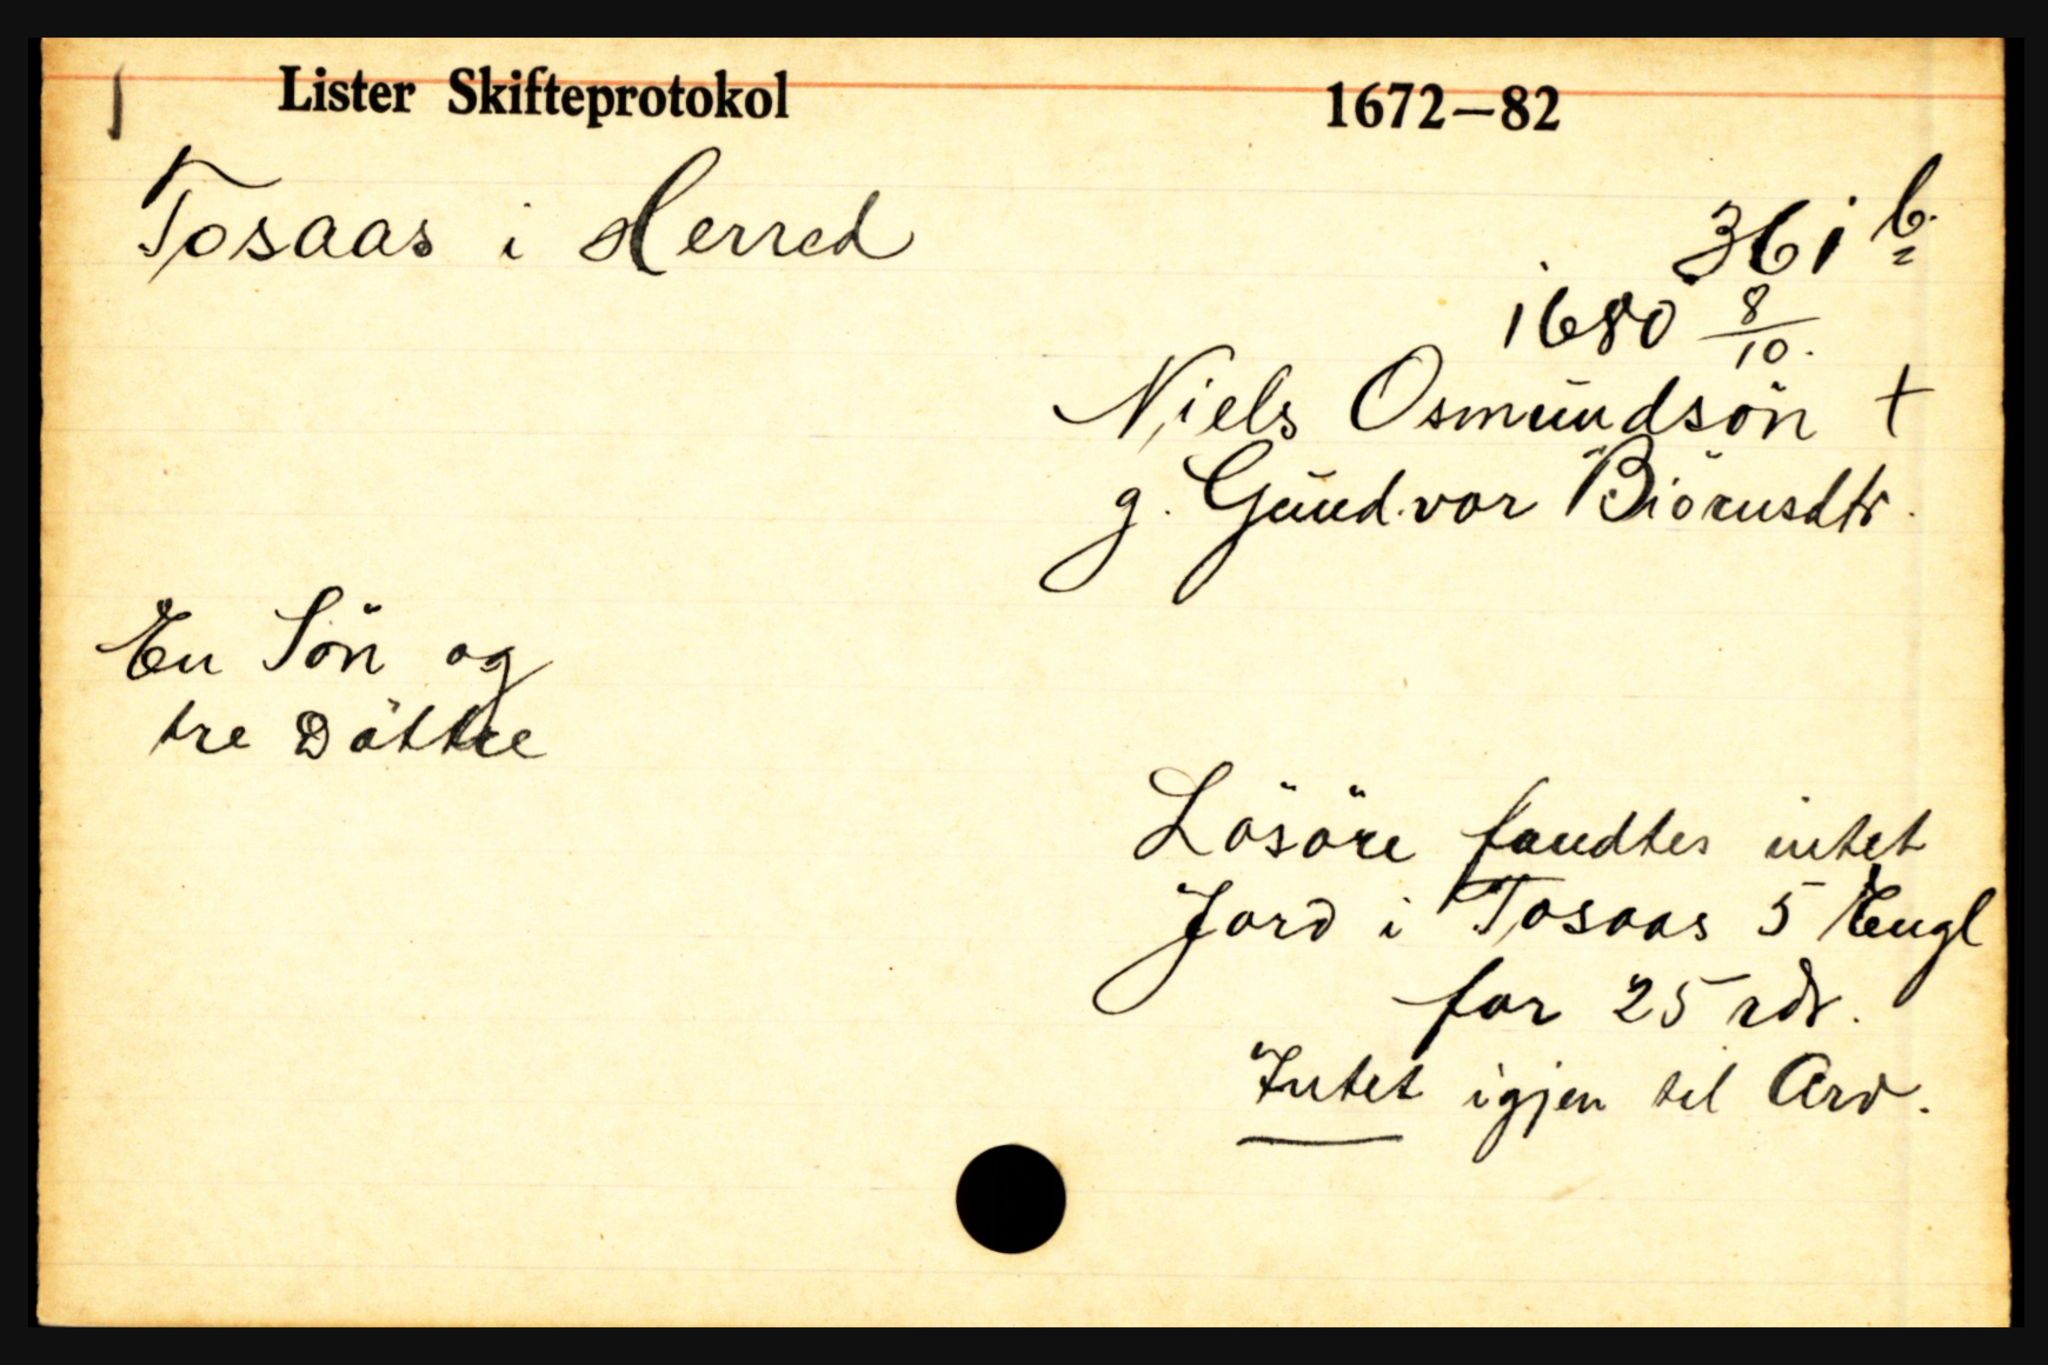 Lister Skifteprotokol 1672–82
Tosaas i Herred
361 b.
1680 8/10.
Niels Osmundsön +
g. Gundvor Biörnsdtr.
En Sön og
tre Döttre
Lösöre fandtes intet
Jord i Tosaas 5 Engl
for 25 rdr.
Intet igjen til Arv.